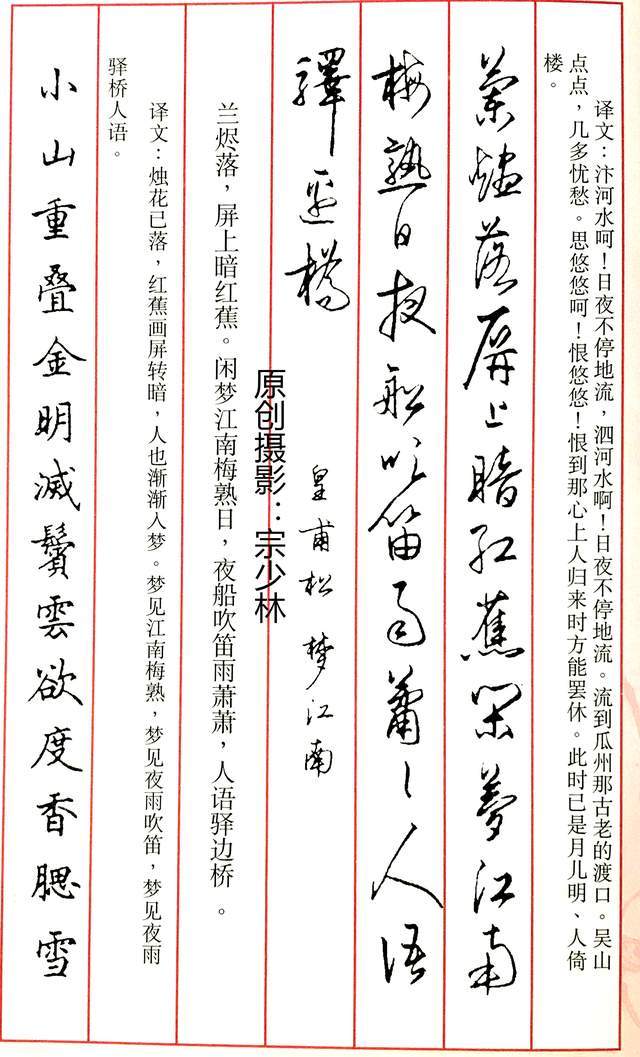 译文：汴河水呵！日夜不停地流，泗河水啊！日夜不停地流。流到瓜州那古老的渡口。吴山
点点，几多忧愁。思悠悠呵！恨悠悠！恨到那心上人归来时方能罢休。此时已是月儿明、人倚
楼。
蘭燼落屏上暗红蕉闲夢江南
梅熟日夜船吹笛雨蕭〻人语
驛邊橋
皇甫松 梦江南
兰烬落，屏上暗红蕉。闲梦江南梅熟日，夜船吹笛雨萧萧，人语驿边桥。
译文：烛花已落，红蕉画屏转暗，人也渐渐入梦。梦见江南梅熟，梦见夜雨吹笛，梦见夜雨
驿桥人语。
小山重叠金明滅鬢雲欲度香腮雪
原创摄影：宗少林